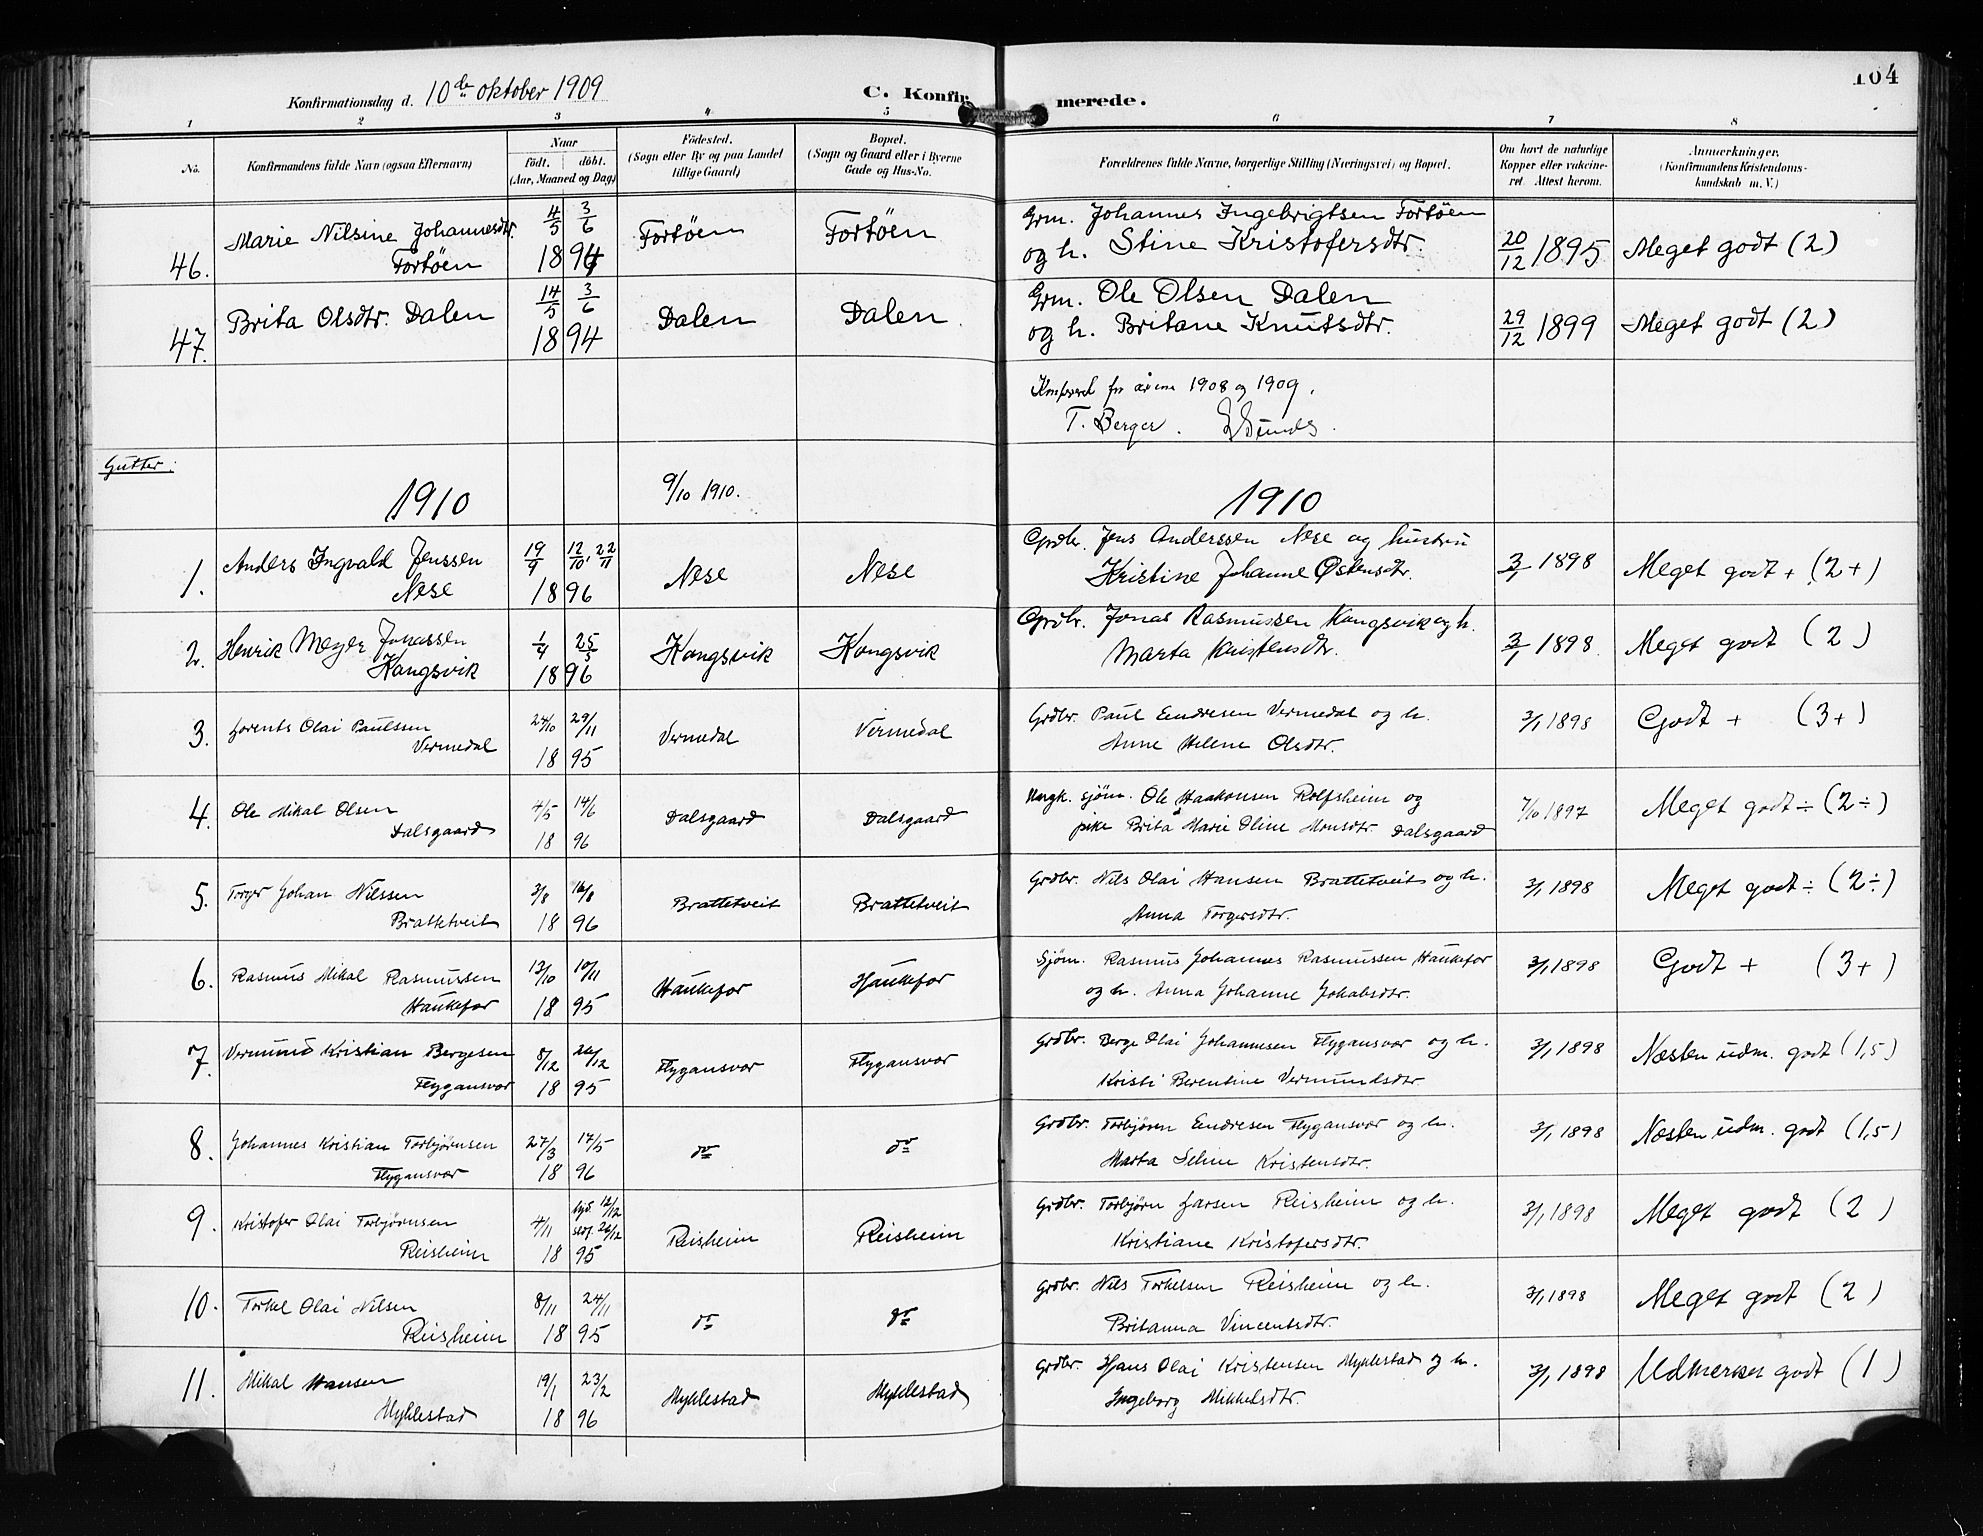 104
Konfirmationsdag d. 10de oktober 1909 C. Konfirmerede.
1 2 3 4 5 6 7 8
No. Konfirmandens fulde Navn (ogsaa Efternavn) Naar født. døbt. (Aar, Maaned og Dag) Fødested. (Sogn eller By og paa Landet tillige Gaard) Bopæl. (Sogn og Gaard eller i Byerne Gade og Hus-No. Forældrenes fulde Navne, borgerlige Stilling (Næringsvei) og Bopæl. Om havt de naturlige Kopper eller vakcineret. Attest herom. Anmærkninger. (Konfirmandens Kristendomskundskab m. V.)
46. Marie Nilsine Johannesdtr. 4/5 3/6 Fortöen Fortöen Grm. Johannes Ingebrigtsen Fortöen
Fortöen 18 94 og h. Stine Kristofersdtr. 20/12 1895 Meget godt (2)
47. Brita Olsdtr. Dalen 14/5 3/6 Dalen Dalen Grm. Ole Olsen Dalen
18 94 og h. Britane Knutsdtr. 29/12 1899 Meget godt (2)
1908 og 1909.
T. Berger.
Gutter:
1910 9/10 1910. 1910
1. Anders Ingvald Jenssen 19/9 12/10, 22/11 Nese Nese Grdbr. Jens Anderssen Nese og hustru
Nese 18 96 Kristine Johanne Østensdtr. 3/1 1898 Meget godt + (2+)
2. Henrik Meyer Jonassen 1/4 25/5 Kongsvik Kongsvik Grdbr. Jonas Rasmussen Kongsvik og h.
Kongsvik 18 96 Marta Kristensdtr. 3/1 1898 Meget godt (2)
3. Lorents Olai Paulssen 24/10 29/11 Vermedal Vermedal Grdbr. Paul Endresen Vermedal og h.
Vermedal 18 95 Anne Helene Olsdtr. 3/1 1898 Godt + (3+)
4. Ole Mikal Olsen 4/5 14/6 Dalsgaard Dalsgaard Ungk. sjöm. Ole Haakonsen Rolfsheim og
Dalsgaard 18 96 pike Brita Marie Oline Monsdtr. Dalsgaard 7/10 1897 Meget godt ÷ (2÷)
5. Torger Johan Nilssen 3/8 16/8 Brattetveit Brattetveit Grdbr. Nils Olai Hansen Brattetveit og h.
Brattetveit 18 96 Anna Torgersdtr. 3/1 1898 Meget godt ÷ (2÷)
6. Rasmus Mikal Rasmussen 13/10 10/11 Haukefær Haukefær Sjöm. Rasmus Johannes Rasmussen Haukefær
Haukefær 18 95 og h. Anna Johanne Jakobsdtr. 3/1 1898 Godt + (3+)
7. Vermund Kristian Bergesen 8/12 26/12 Flygansvær Flygansvær Grdbr. Berge Olai Johannesen Flygansvær og h.
Flygansvær 18 95 Kristi Berentine Vermundsdtr. 3/1 1898 Næsten udm. godt (1,5)
8. Johannes Kristian Torbjörnsen 27/3 17/5 do do Grdbr. Torbjörn Endresen Flygansvær og h.
Flygansvær 18 96 Marta Seline Kristensdtr. 3/1 1898 Næsten udm. godt (1,5)
9. Kristofer Olai Torbjörnsen 4/11 hjd. 12/12 stdf. 26/12 Reisheim Reisheim Grdbr. Torbjörn Larsen Reisheim og h.
Reisheim 18 95 Kristiane Kristofersdtr. 3/1 1898 Meget godt (2)
10. Torkel Olai Nilsen 8/11 24/11 do do Grdbr. Nils Torkelsen Reisheim og h.
Reisheim 18 95 Britanna Vincentsdtr. 3/1 1898 Meget godt (2)
11. Mikal Hansen 19/1 23/2 Myklestad Myklestad Grdbr. Hans Olai Kristensen Myklestad og h.
Myklestad 18 96 Ingeborg Mikkelsdtr. 3/1 1898 Udmerket godt (1)